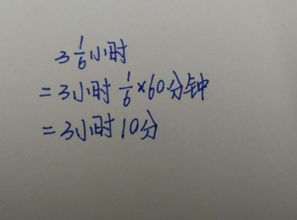 3 1/6 小时
= 3小时 1/6 × 60分钟
= 3小时 10分